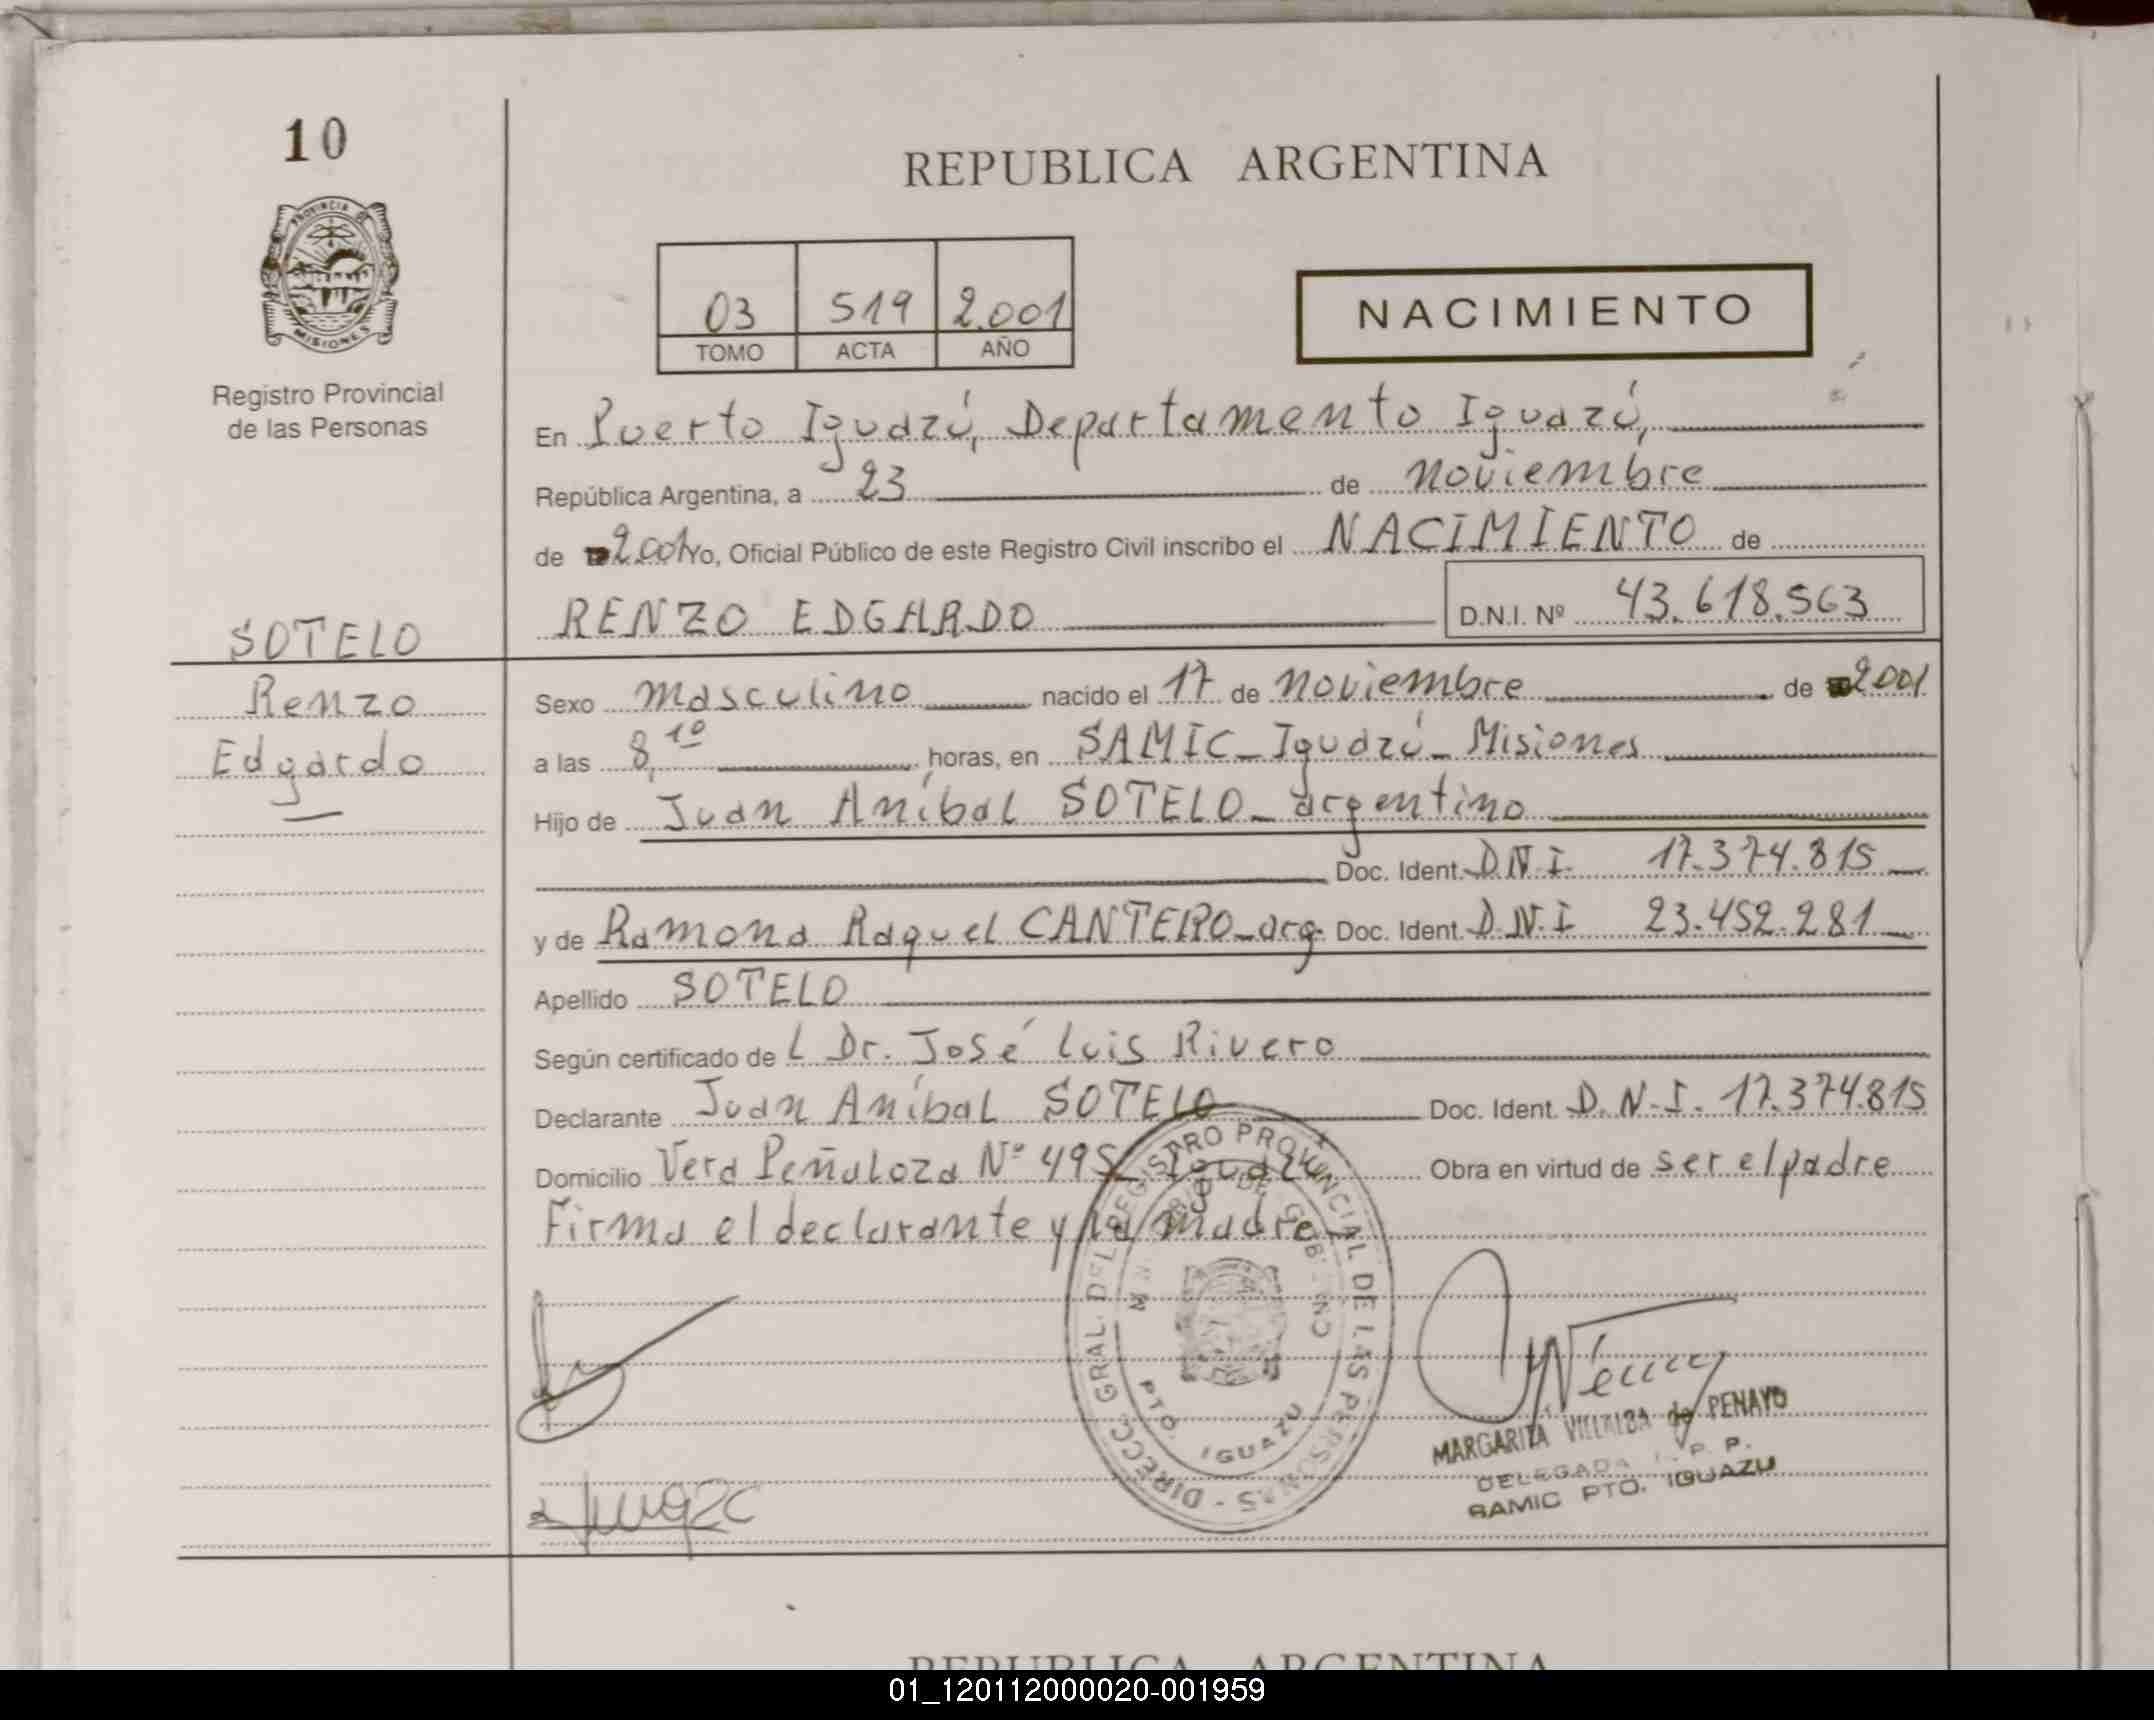 10
PROVINCIA DE
MISIONES
Registro Provincial
de las Personas
REPUBLICA ARGENTINA
03 519 2.001
TOMO ACTA AÑO
NACIMIENTO
En Puerto Iguazú, Departamento Iguazú,
República Argentina, a 23 de noviembre
de 2001 Yo, Oficial Público de este Registro Civil inscribo el NACIMIENTO de
RENZO EDGARDO D.N.I. Nº 43.618.563
SOTELO
Renzo
Edgardo
Sexo masculino nacido el 17 de noviembre de 2001
a las 8,10 horas, en SAMIC - Iguazú - Misiones
Hijo de Juan Aníbal SOTELO - argentino
Doc. Ident. D.N.I. 17.374.815
y de Ramona Raquel CANTERO - arg. Doc. Ident. D.N.I 23.452.281
Apellido SOTELO
Según certificado de L Dr. José Luis Rivero
Declarante Juan Aníbal SOTELO Doc. Ident. D.N.I. 17.374.815
Domicilio Vera Peñaloza Nº 495 - Iguazú Obra en virtud de ser el padre
Firma el declarante y la madre
DIRECC. GRAL. DEL REGISTRO PROVINCIAL DE LAS PERSONAS -
DE GOBIERNO
PTO. IGUAZU
MARGARITA VILLALBA de PENAYO
DELEGADA R. P. P.
SAMIC PTO. IGUAZU
REPUBLICA ARGENTINA
01_120112000020-001959